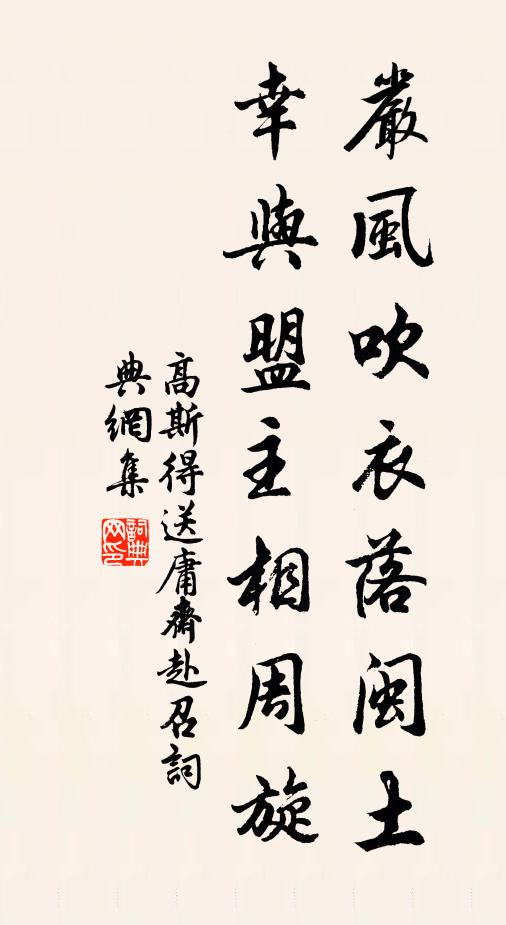 嚴風吹衣落閩土
幸與盟主相周旋
高斯得送庸齋赴召詞
典網集
詞典網印